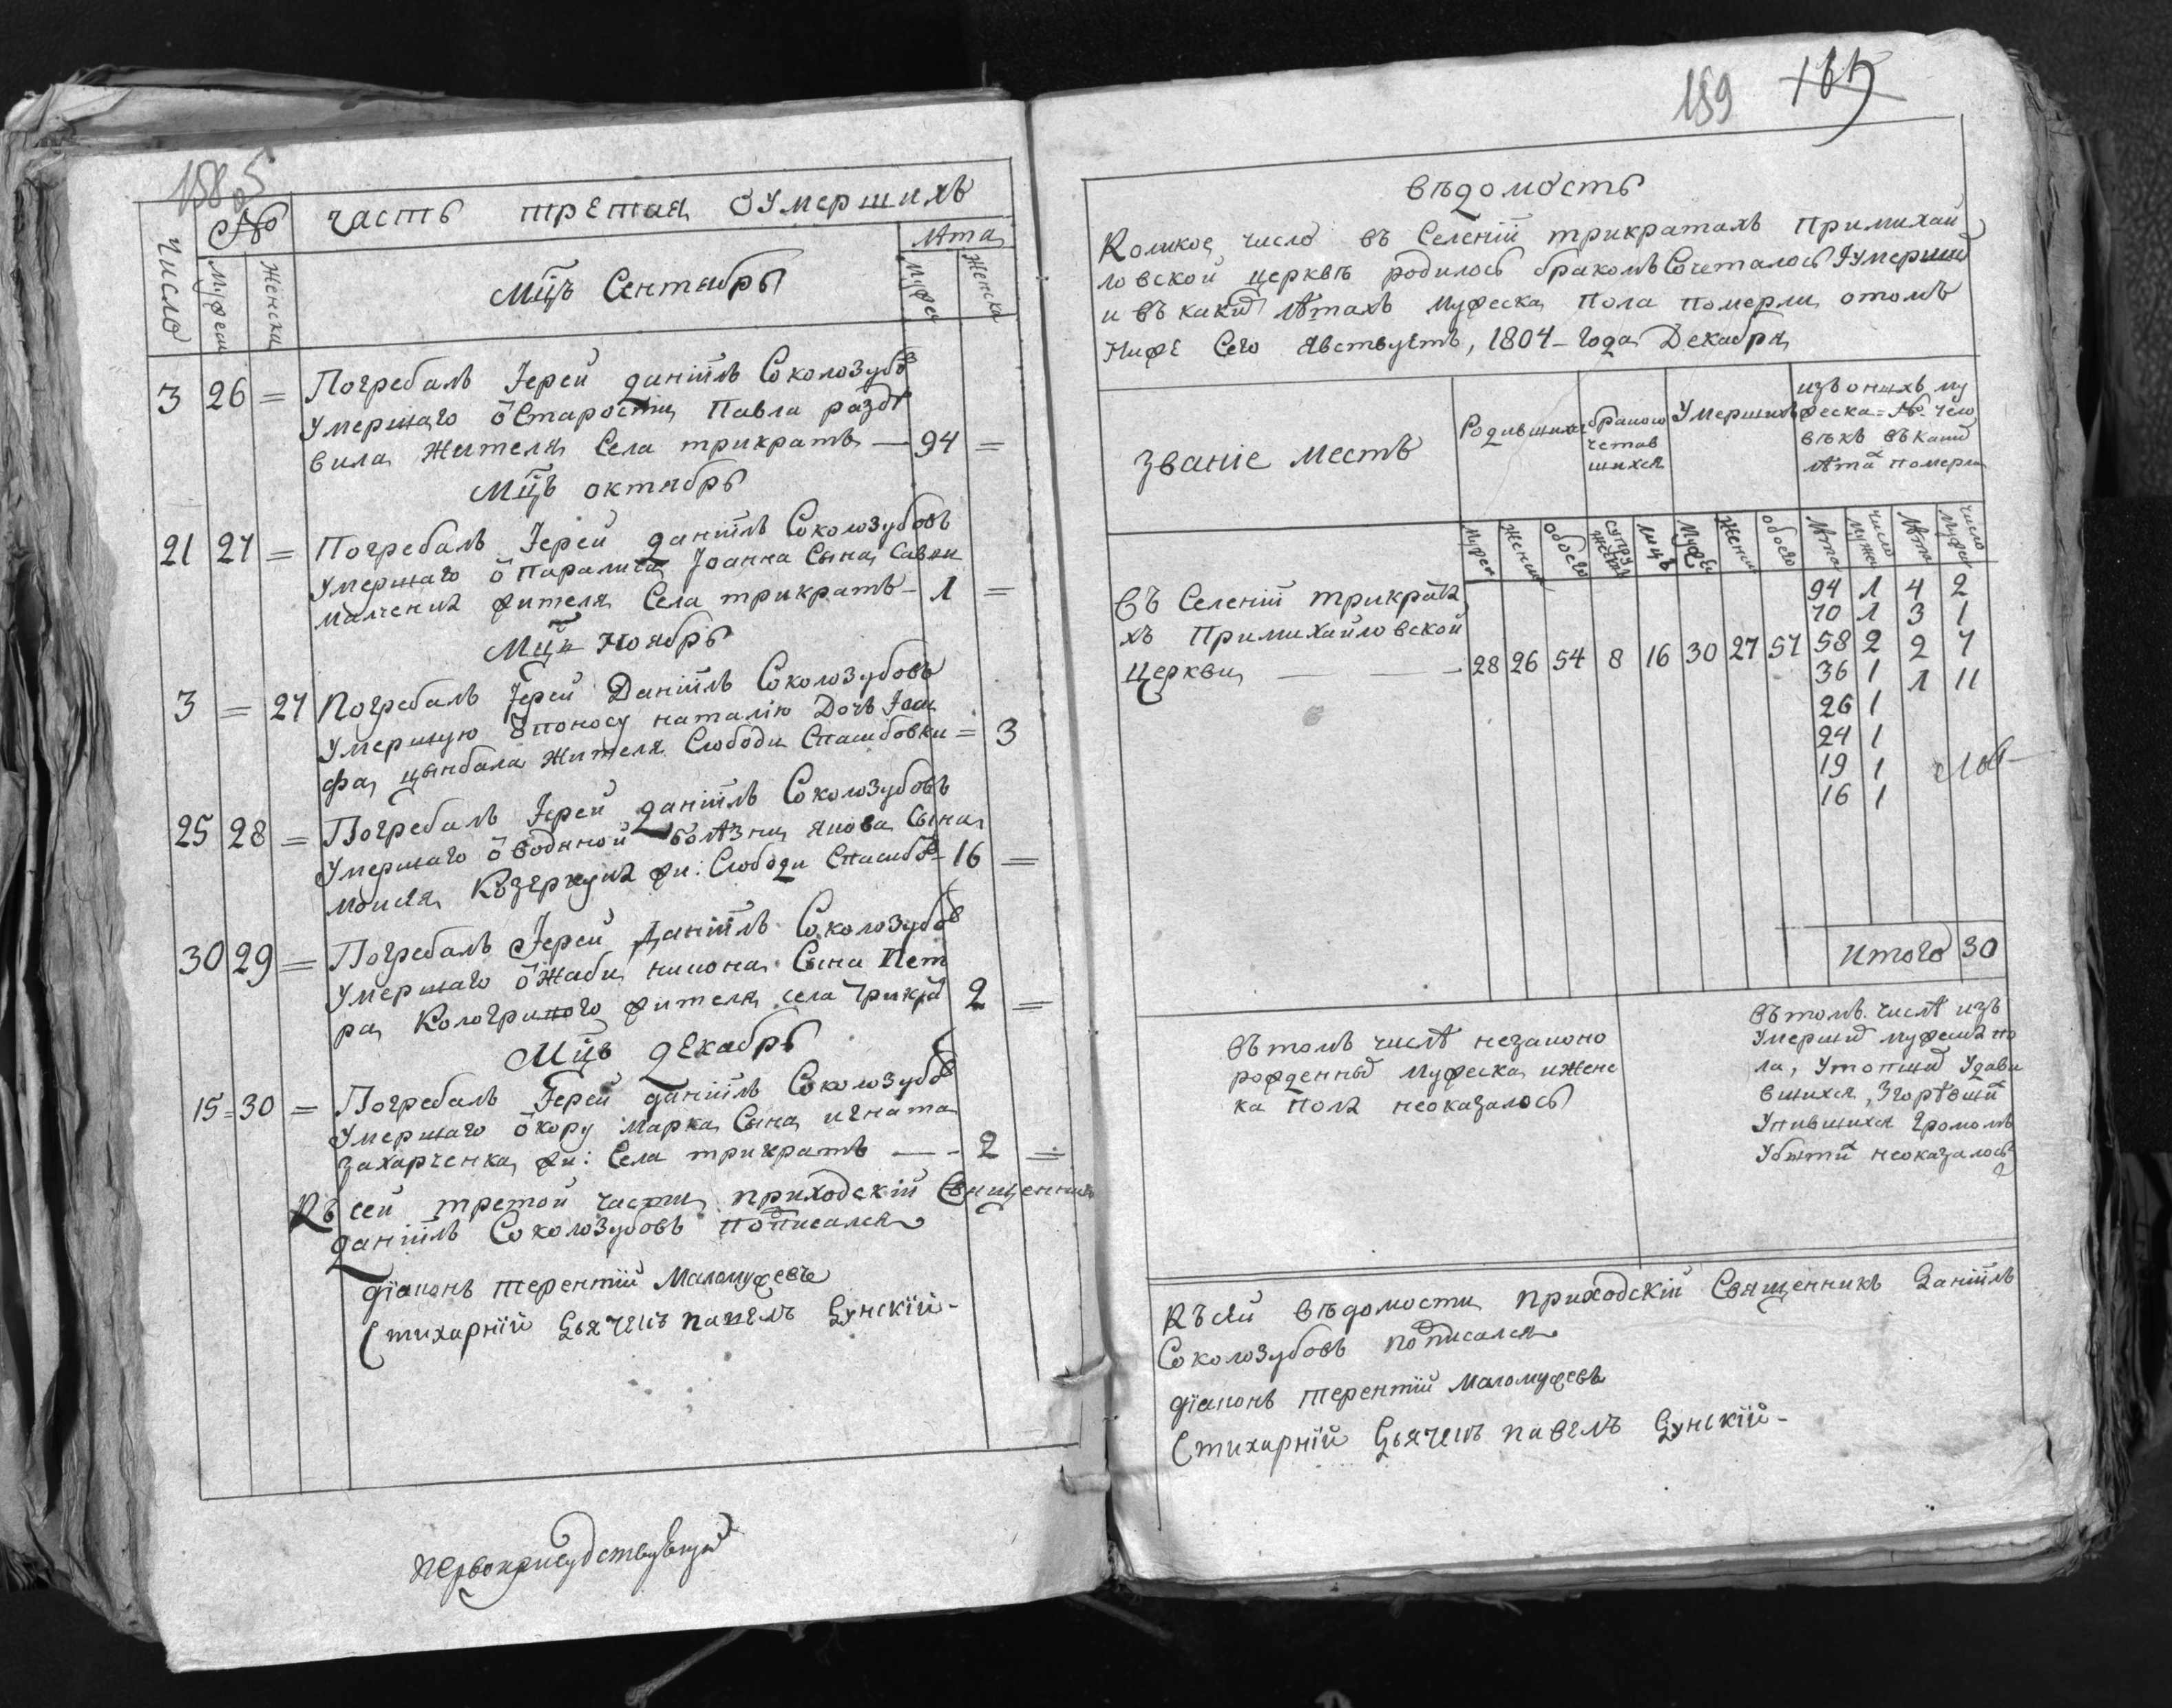 158
Число
№
Мужеск
Женска
часть третая оумершихъ
Мцъ Сентябрь
лѣта
Мужес
Женска
3 26 = Погребалъ Іерей даніилъ Соколозубо
умершаго ѿ Старости Павла разбі
вила жителя Села трикратъ — 94 =
Мцъ октябрь
21 27 = Погребалъ Іерей даніилъ Соколозубовъ
умершаго ѿ Паралича Іоанна Сына Савви
жителя Села трикратъ — 1 =
Мцъ Ноябрь
3 = 27 Погребалъ Іерей Даніилъ Соколозубовъ
умершую ѿ поносу наталію Дочь Іоси
фа цынбала жителя Слободи Спасибовки = 3
25 28 = Погребалъ Іерей даніилъ Соколозубовъ
умершаго ѿ водяной болѣзни якова Сына
моисея жи: Слободи Спасибо 16 =
30 29 = Погребалъ Іерей Даніилъ Соколозубо
умершаго ѿ жаби никона Сына Пет
ра Кологривого жителя села трикра 2 =
Мцъ декабрь
15 = 30 = Погребалъ Іерей даніилъ Соколозубо
умершаго ѿ кору марка Сына игната
захарченка жи: Села трикратъ — 2 =
Къ сей третой части приходскій Священник
даніилъ Соколозубовъ подписался
діаконъ терентій Маломужевъ
Стихарній дьячекъ павелъ дунскій
первоприсудствующій
189
вѣдомость
Коликое число въ Селеніи трикратахъ При михаи
ловской церквѣ родилось бракомъ Сочеталось И умерши
и въ каки лѣтахъ мужеска пола померли о томъ
Ниже Сего явствуетъ, 1804 года Декабря
званіе местъ
Родившихся
браком
четав
шихся
Умершихъ
изъ онихъ му
жеска № чело
вѣкъ въ каки
лѣта померли
Мужеск
Женск
обоего
супружест
лицъ
Мужес
Женск
обоего
лѣта
число Мужес
лѣта
число Мужес
въ Селеніи трикрата
хъ При михайловской
церкви — 28 26 54 8 16 30 27 57
94 1 4 2
70 1 3 1
58 2 2 7
36 1 1 11
26 1
24 1
19 1
16 1
итого 30
въ томъ числѣ незаконо
рожденны Мужеска и жен
ка пола неоказалось
въ томъ числѣ изъ
умерши мужеска по
ла, утопши удави
вшихся, Згорѣвши
упившихся громомъ
убити неоказалось
Къ сей вѣдомости приходскій Священникъ даніилъ
Соколозубовъ подписался
діаконъ терентій Маломужевъ
Стихарній дьячекъ павелъ дунскій